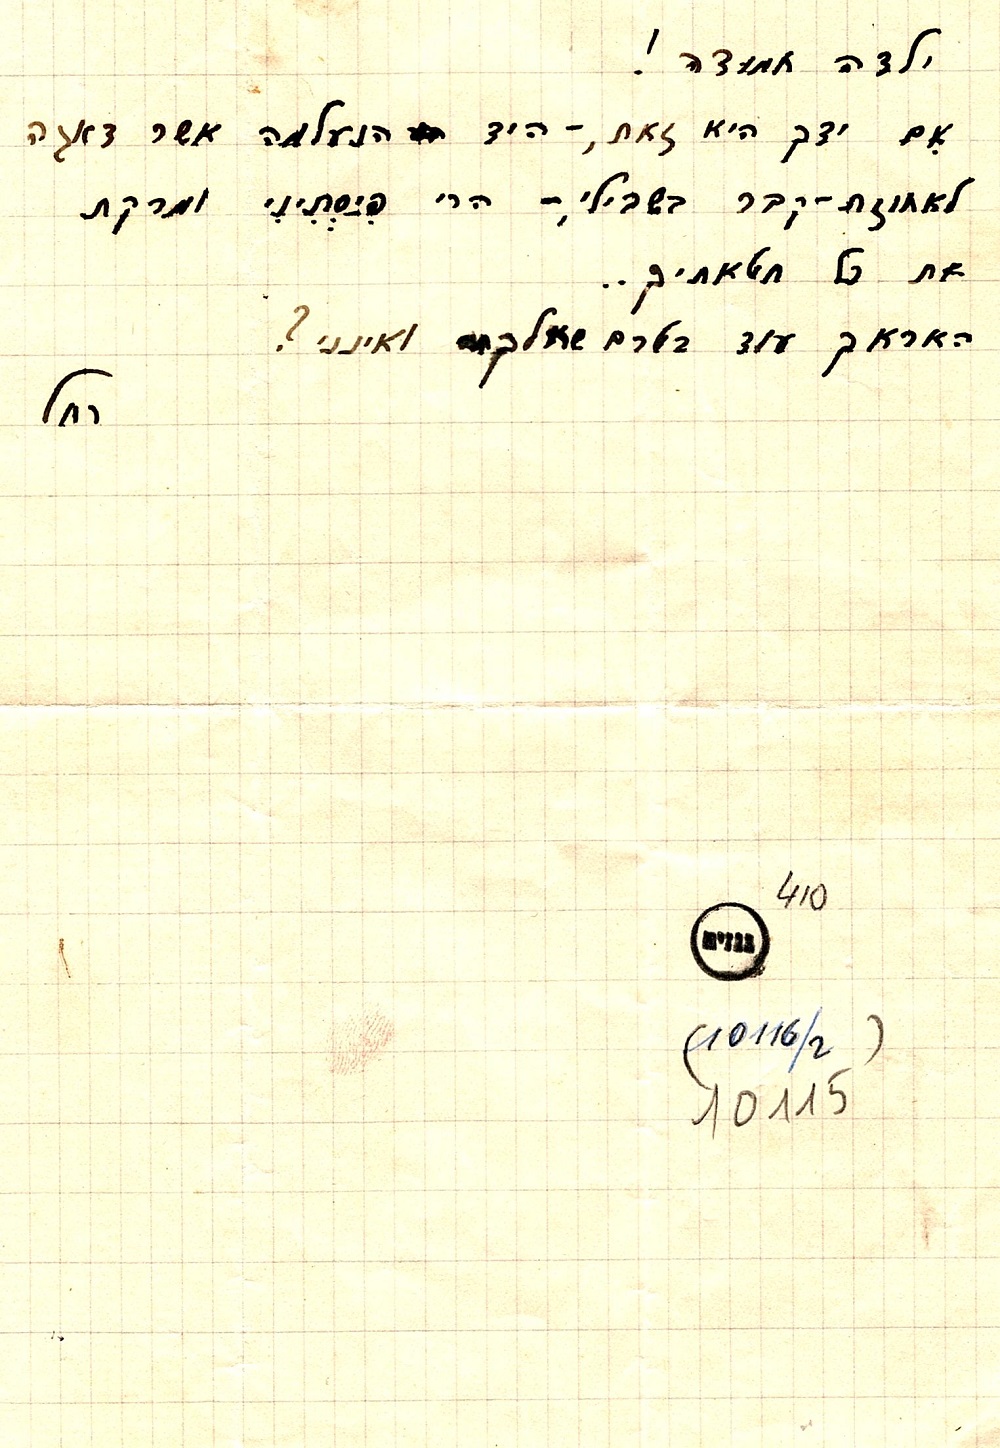 ילדה חמודה!
אִם ידך היא זאת,- היד הנעלמה אשר דאגה
לאחוזת-קבר בשבילי,- הרי פִּיַסְתִּינִי ומרקת
את כל חטאתיך..
האראך עוד בטרם שאלך ואינני?
רחל
410
גנזים
(10116/2)
10115